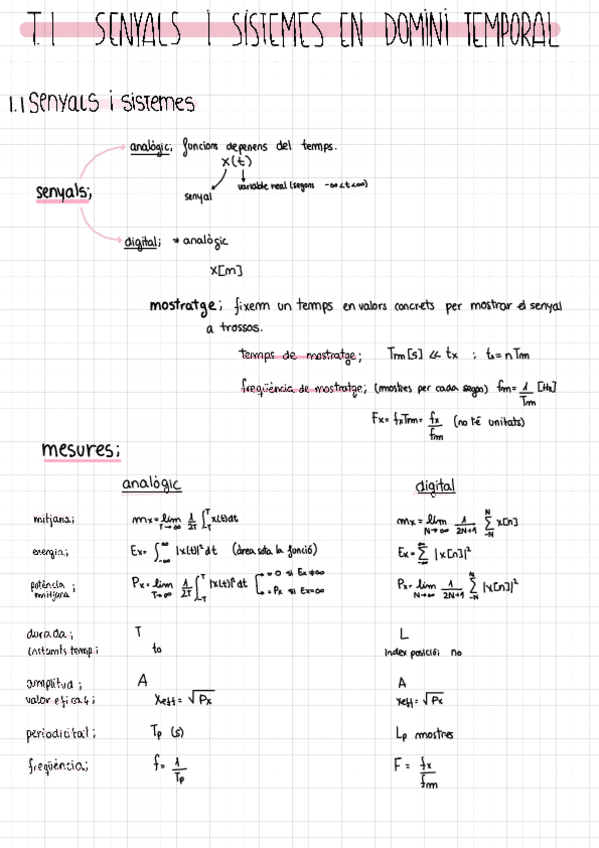 T.1 SENYALS I SISTEMES EN DOMINI TEMPORAL
1.1 Senyals i sistemes
senyals;
analògic; funcions depenens del temps.
x(t)
senyal
variable real (segons -∞<t<∞)
digital; ≠ analògic
x[m]
mostratge; fixem un temps en valors concrets per mostrar el senyal
a trossos.
temps de mostratge; Tm[s] << tx ; ts = nTm
freqüència de mostratge; (mostres per cada segon) fm = 1/Tm [Hz]
Fx = fxTm = fx/fm (no té unitats)
mesures;
analògic digital
mitjana; mx = lim T→∞ 1/2T ∫_-T^T x(t)dt mx = lim N→∞ 1/2N+1 Σ_-N^N x[n]
energia; Ex = ∫_-∞^∞ |x(t)|² dt (àrea sota la funció) Ex = Σ_-∞^∞ |x[n]|²
potència mitjana; Px = lim T→∞ 1/2T ∫_-T^T |x(t)|² dt [ = 0 si Ex≠∞ = Px si Ex=∞ Px = lim N→∞ 1/2N+1 Σ_-N^N |x[n]|²
durada; T L
instants temp; to index posició; no
amplitud; A A
valor eficaç; Xeff = √Px Xeff = √Px
periodicitat; Tp (s) Lp mostres
freqüència; f = 1/Tp F = fx/fm